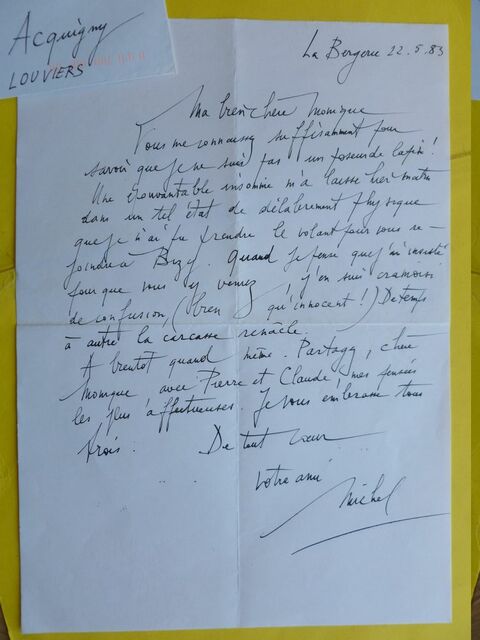 Acquigny
LOUVIERS
La Bergerie 22.5.83
Ma bien chère Monique
Vous me connaissez suffisamment pour
savoir que je ne suis pas un poseur de lapin!
Une épouvantable insomnie m'a laissé hier matin
dans un tel état de délabrement physique
que je n'ai pu prendre le volant pour vous re-
joindre à Bizy. Quand je pense que j'ai insisté
pour que vous y veniez, j'en suis cramoisi
de confusion, (bien qu'innocent!) De temps
à autre la carcasse renâcle.
A bientôt quand même. Partagez, chère
Monique avec Pierre et Claude mes pensées
les plus affectueuses. Je vous embrasse tous
trois.
De tout cœur
Votre ami
Michel